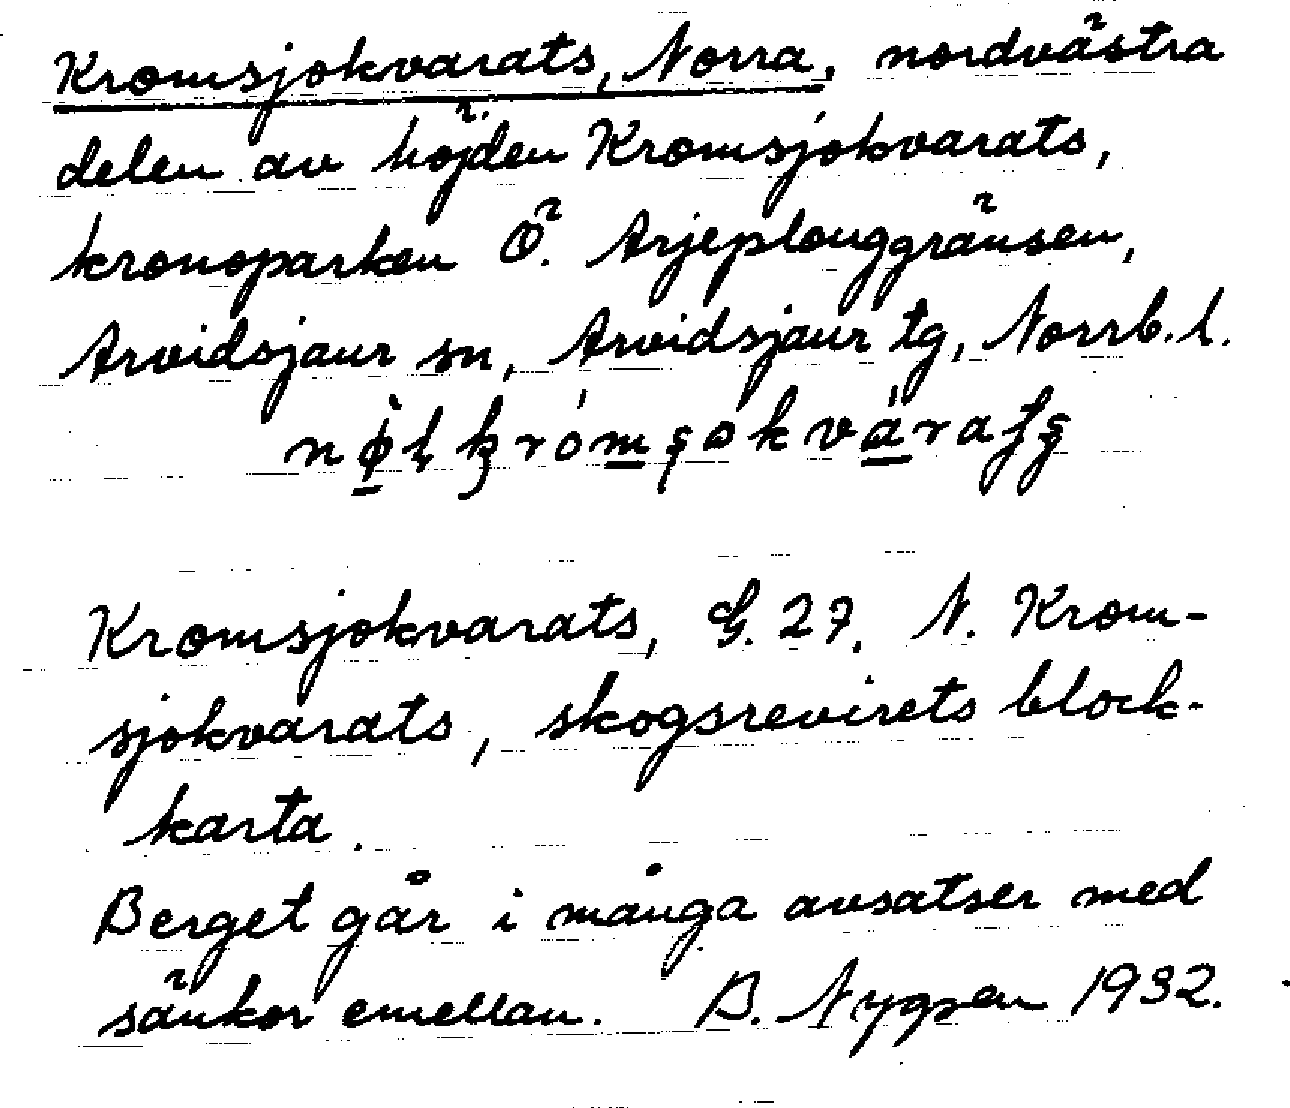 Kromsjokvarats, Norra, nordvästra
delen av höjden Kromsjokvarats,
kronoparken Ö. Arjeplouggränsen,
Arvidsjaur sn, Arvidsjaur tg, Norrb. l.
Kromsjokvarats, G. 27, N. Krom-
sjokvarats, skogsrevirets block-
karta.
Berget går i många avsatser med
sänkor emellan. B. Nygren 1932.